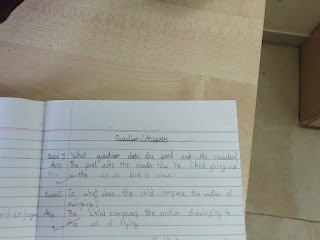 Question/Answer
Ques 1 What question does the poet ask the reader?
Ans The poet asks the reader how he liked going up
in the air so blue in colour.
Ques2 To what does the child compare the motion of
swinging?
Ans The child compares the motion of swinging to
the act of flying.
and enjoym